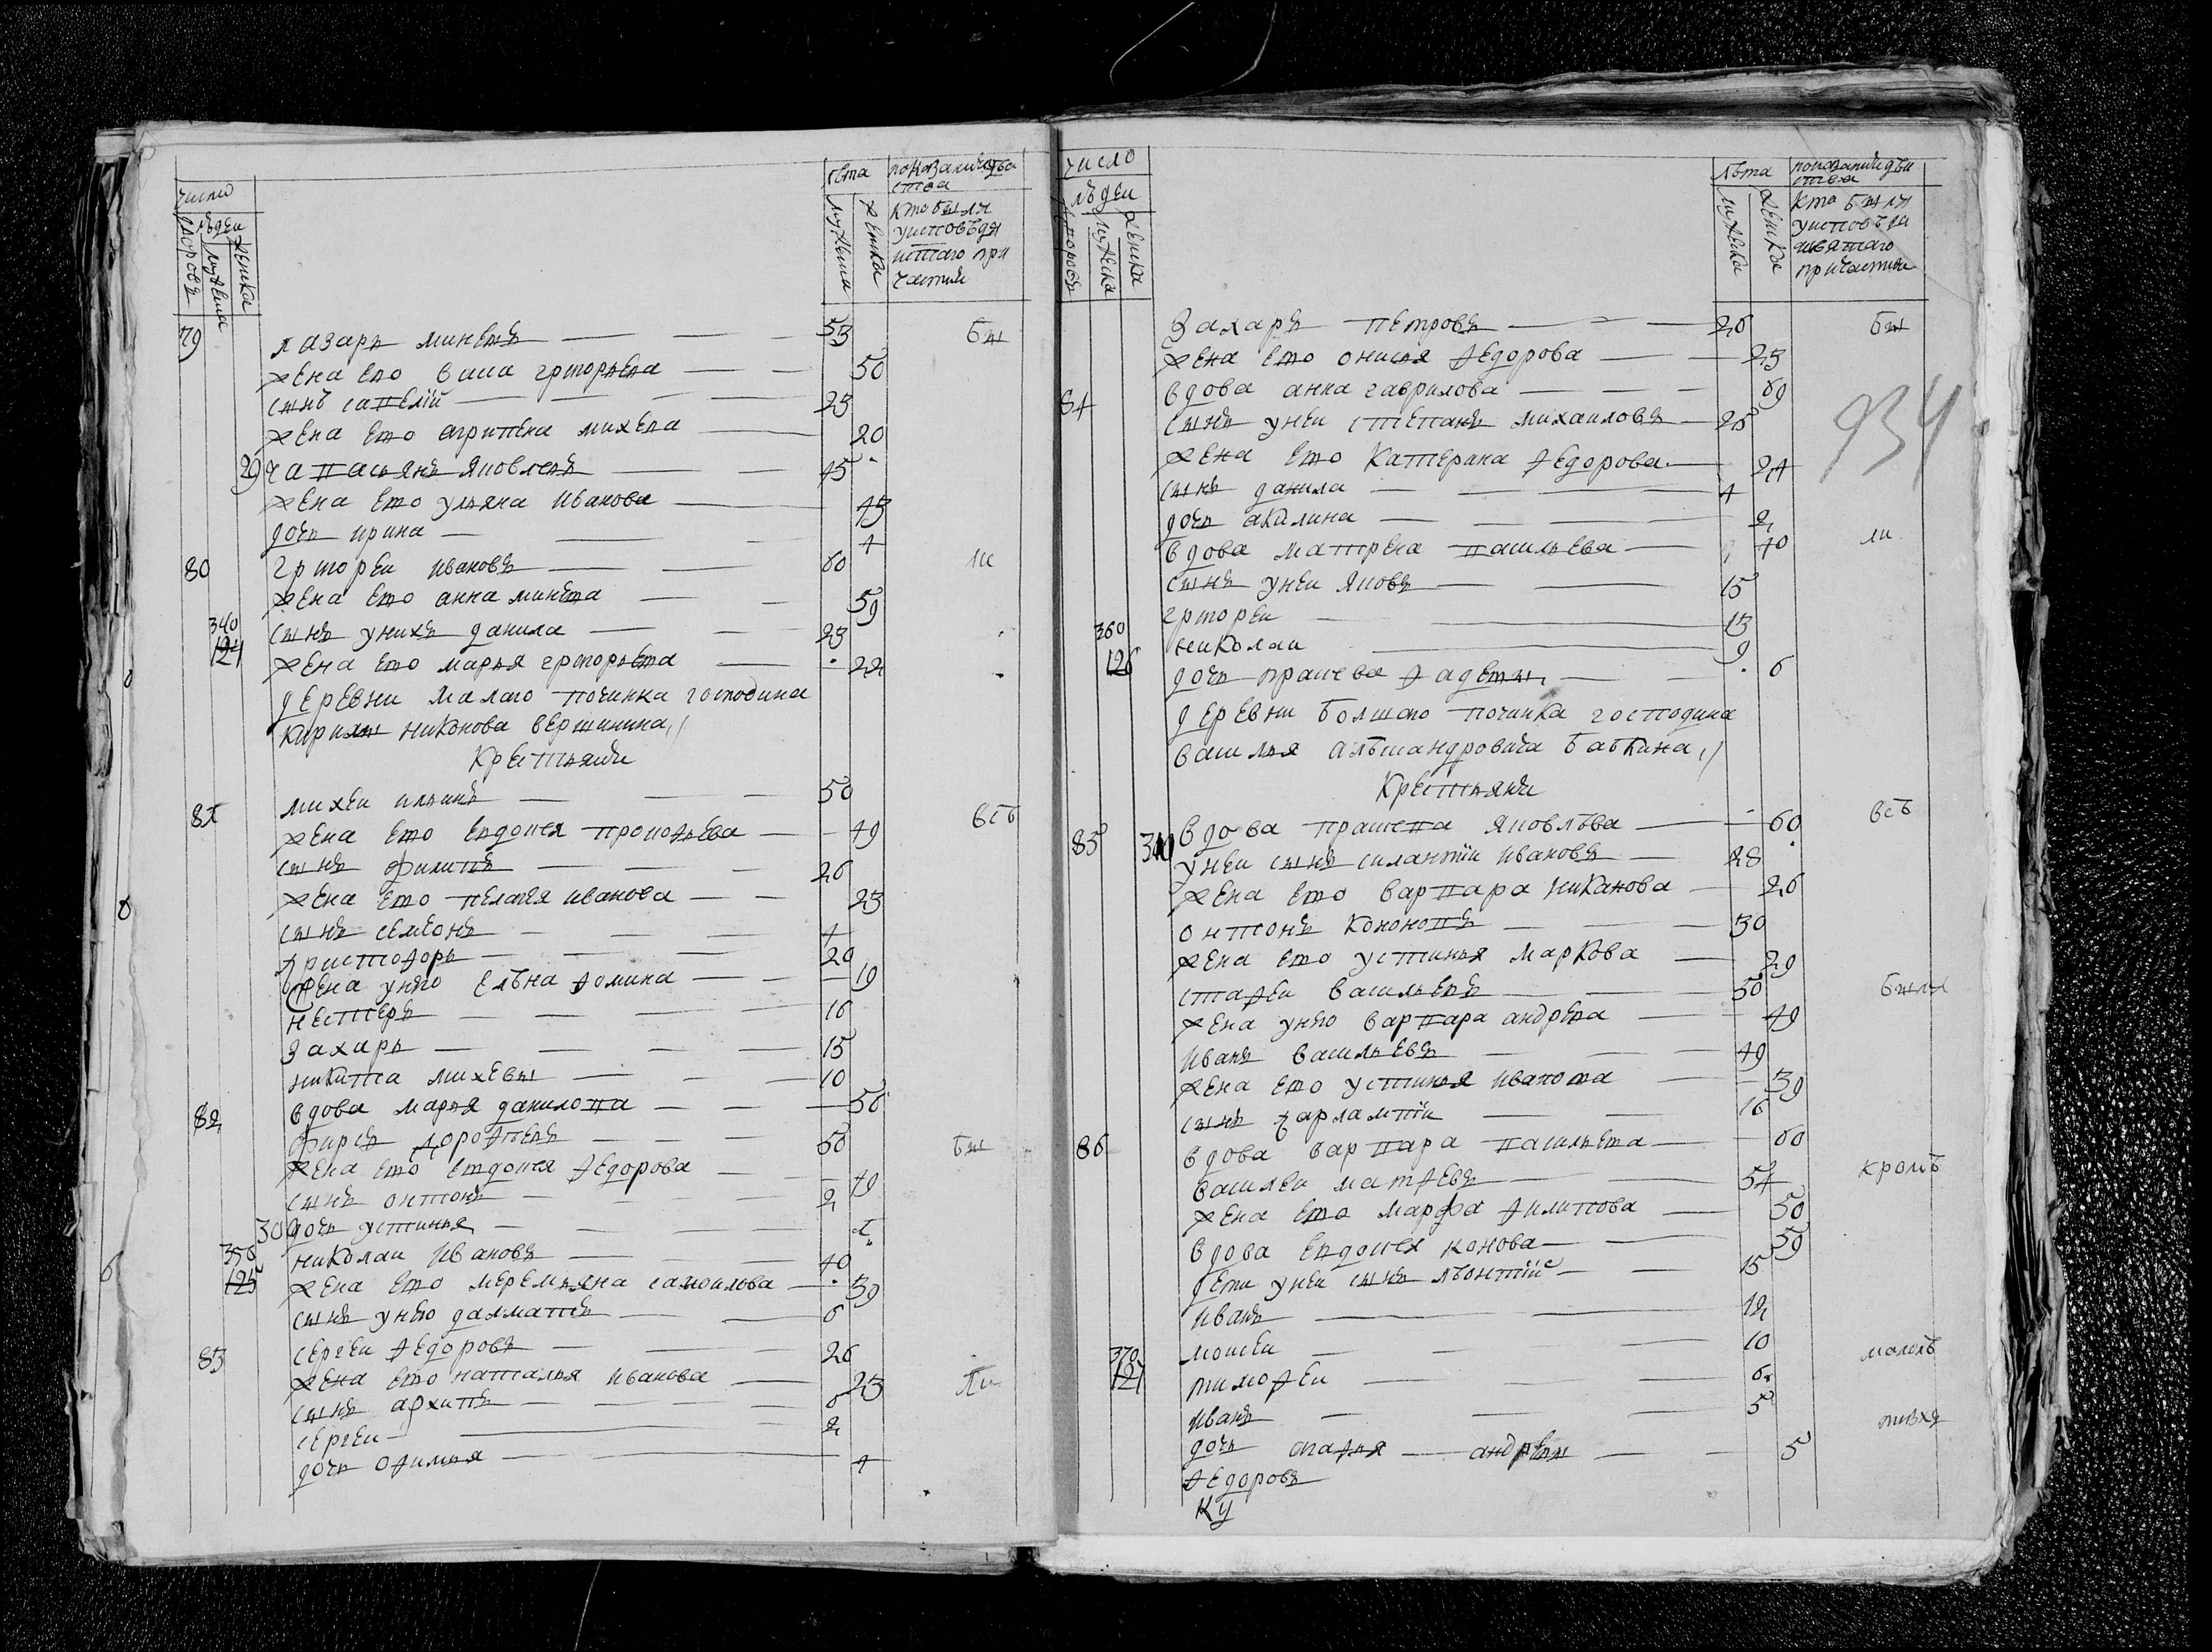 число
людеи
дворовъ
мужеска
женска
лѣта
мужеска
женска
показание дѣи
ства
кто были
у исповѣди
и с̃таго при
частия
79 лазарь минеевъ 53 бы
жена ево васа григорьева 50
сынъ савелій 23
жена ево агрипена михева 20
29 яковлевъ 45
жена ево ульяна иванова 43
дочь ирина 4
80 григореи ивановъ 60 ли
жена ево анна минева 59
340 сынъ унихъ данила 23
124 жена ево марья григорьева 22
деревни малаго починка господина
кирилы никонова вершинина
крестьяня
81 михеи ильинъ 50 всѣ
жена ево евдокея прокофьева 49
сынъ филипъ 26
жена ево пелагея иванова 23
сынъ семеонъ 4
христофоръ 20
жена унего елѣна фомина 19
нестеръ 16
захаръ 15
никита михевы 10
82 вдова марья данилова 56
фирсъ дорофеевъ 50 бы
жена ево евдокея федорова 49
сынъ онтонъ 2
30 дочь устинья 1
350 николаи ивановъ 40
125 жена ево меремьяна самоилова 39
сынъ унего далматъ 6
83 сергеи федоровъ 26
жена ево наталья иванова 23 ли
сынъ архипъ 6
сергеи 2
дочь офимья 4
число
людеи
дворовъ
мужеска
женска
лѣта
мужеска
женска
показание дѣи
ства
кто были
у исповѣди
и святаго
причастия
934
захаръ петровъ 26 бы
жена ево онисья федорова 23
84 вдова анна гаврилова 69
сынъ унеи степанъ михаиловъ 26
жена ево катерина федорова 24
сынъ данила 4
дочь акилина 2
вдова матрена васильева 40 ли
сынъ унеи яковъ 15
григореи 13
360 николаи 9
126 дочь прасковя фадеевы 6
деревни болшаго починка господина
василья алѣксандровича бабкина
крестьяня
85 310 вдова прасковя яковлѣва 60 всѣ
унеи сынъ силантіи ивановъ 28
жена ево варвара никанова 26
онтонъ кононовъ 30
жена ево устинья маркова 29
стафеи васильевъ 50 были
жена унего варвара андрева 49
иванъ васильевъ 49
жена ево устинья иванова 39
сынъ харлампіи 16
86 вдова варвара васильева 60
василеи матфевъ 54 кромѣ
жена ево марфа филипова 50
вдова евдокея конова 39
дети унеи сынъ лѣонтіи 15
иванъ 12
370 моисеи 10 малолѣ
127 тимофеи 6
иванъ 5
дочь агафья андревы 5 тнихъ
федоровъ
ку